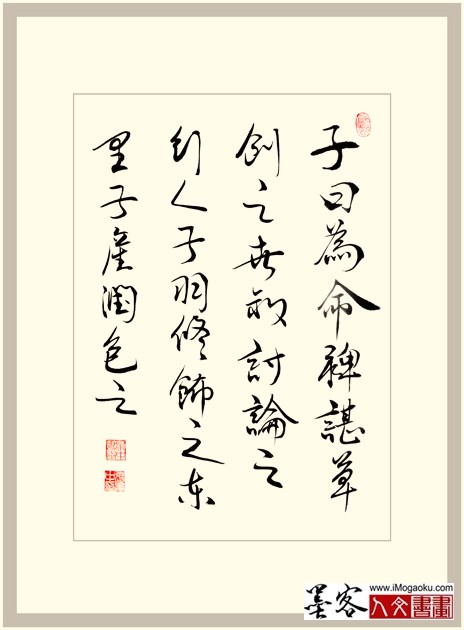 子曰為命裨諶草
創之世叔討論之
行人子羽修飾之东
里子產潤色之
墨客
www.iMogaoku.com
人文書畫